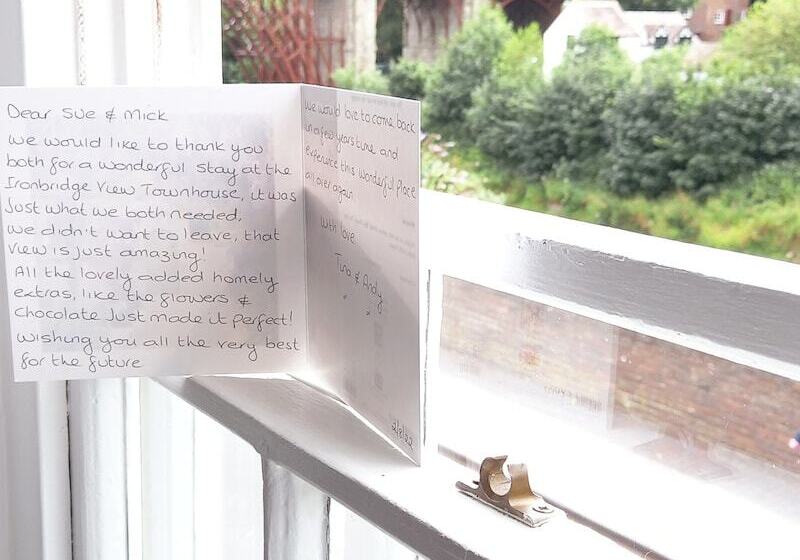 Dear Sue & Mick
We would like to thank you
both for a wonderful stay at the
Ironbridge View Townhouse, it was
Just what we both needed,
we didn't want to leave, that
view is just amazing!
All the lovely added homely
extras, like the flowers &
chocolate Just made it perfect!
wishing you all the very best
for the future
we would love to come back
in a few years time and
experience this wonderful place
all over again
with love
Tina & Andy
2/8/22